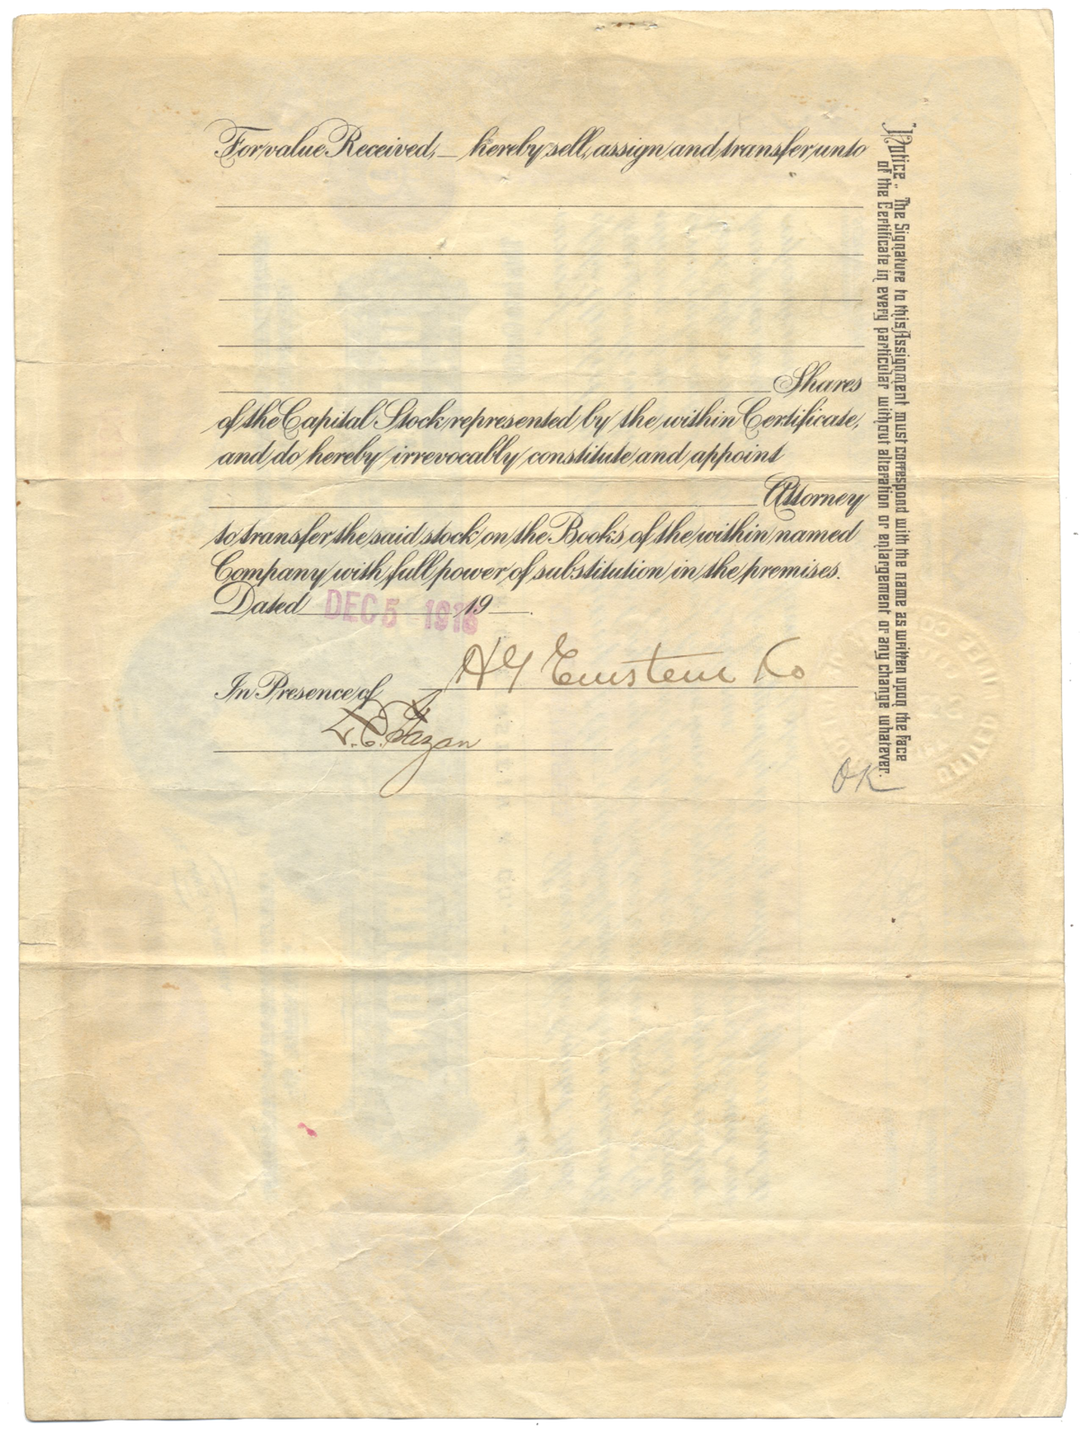 For value Received, — hereby sell, assign and transfer unto
Shares
of the Capital Stock represented by the within Certificate,
and do hereby irrevocably constitute and appoint
Attorney
to transfer the said stock on the Books of the within named
Company with full power of substitution in the premises.
Dated DEC 5 1916 19
H Y Einstein Co
In Presence of
L. E. Fazan
OK
Notice. The Signature to this Assignment must correspond with the name as written upon the Face
of the Certificate in every particular without alteration or enlargement or any change whatever.